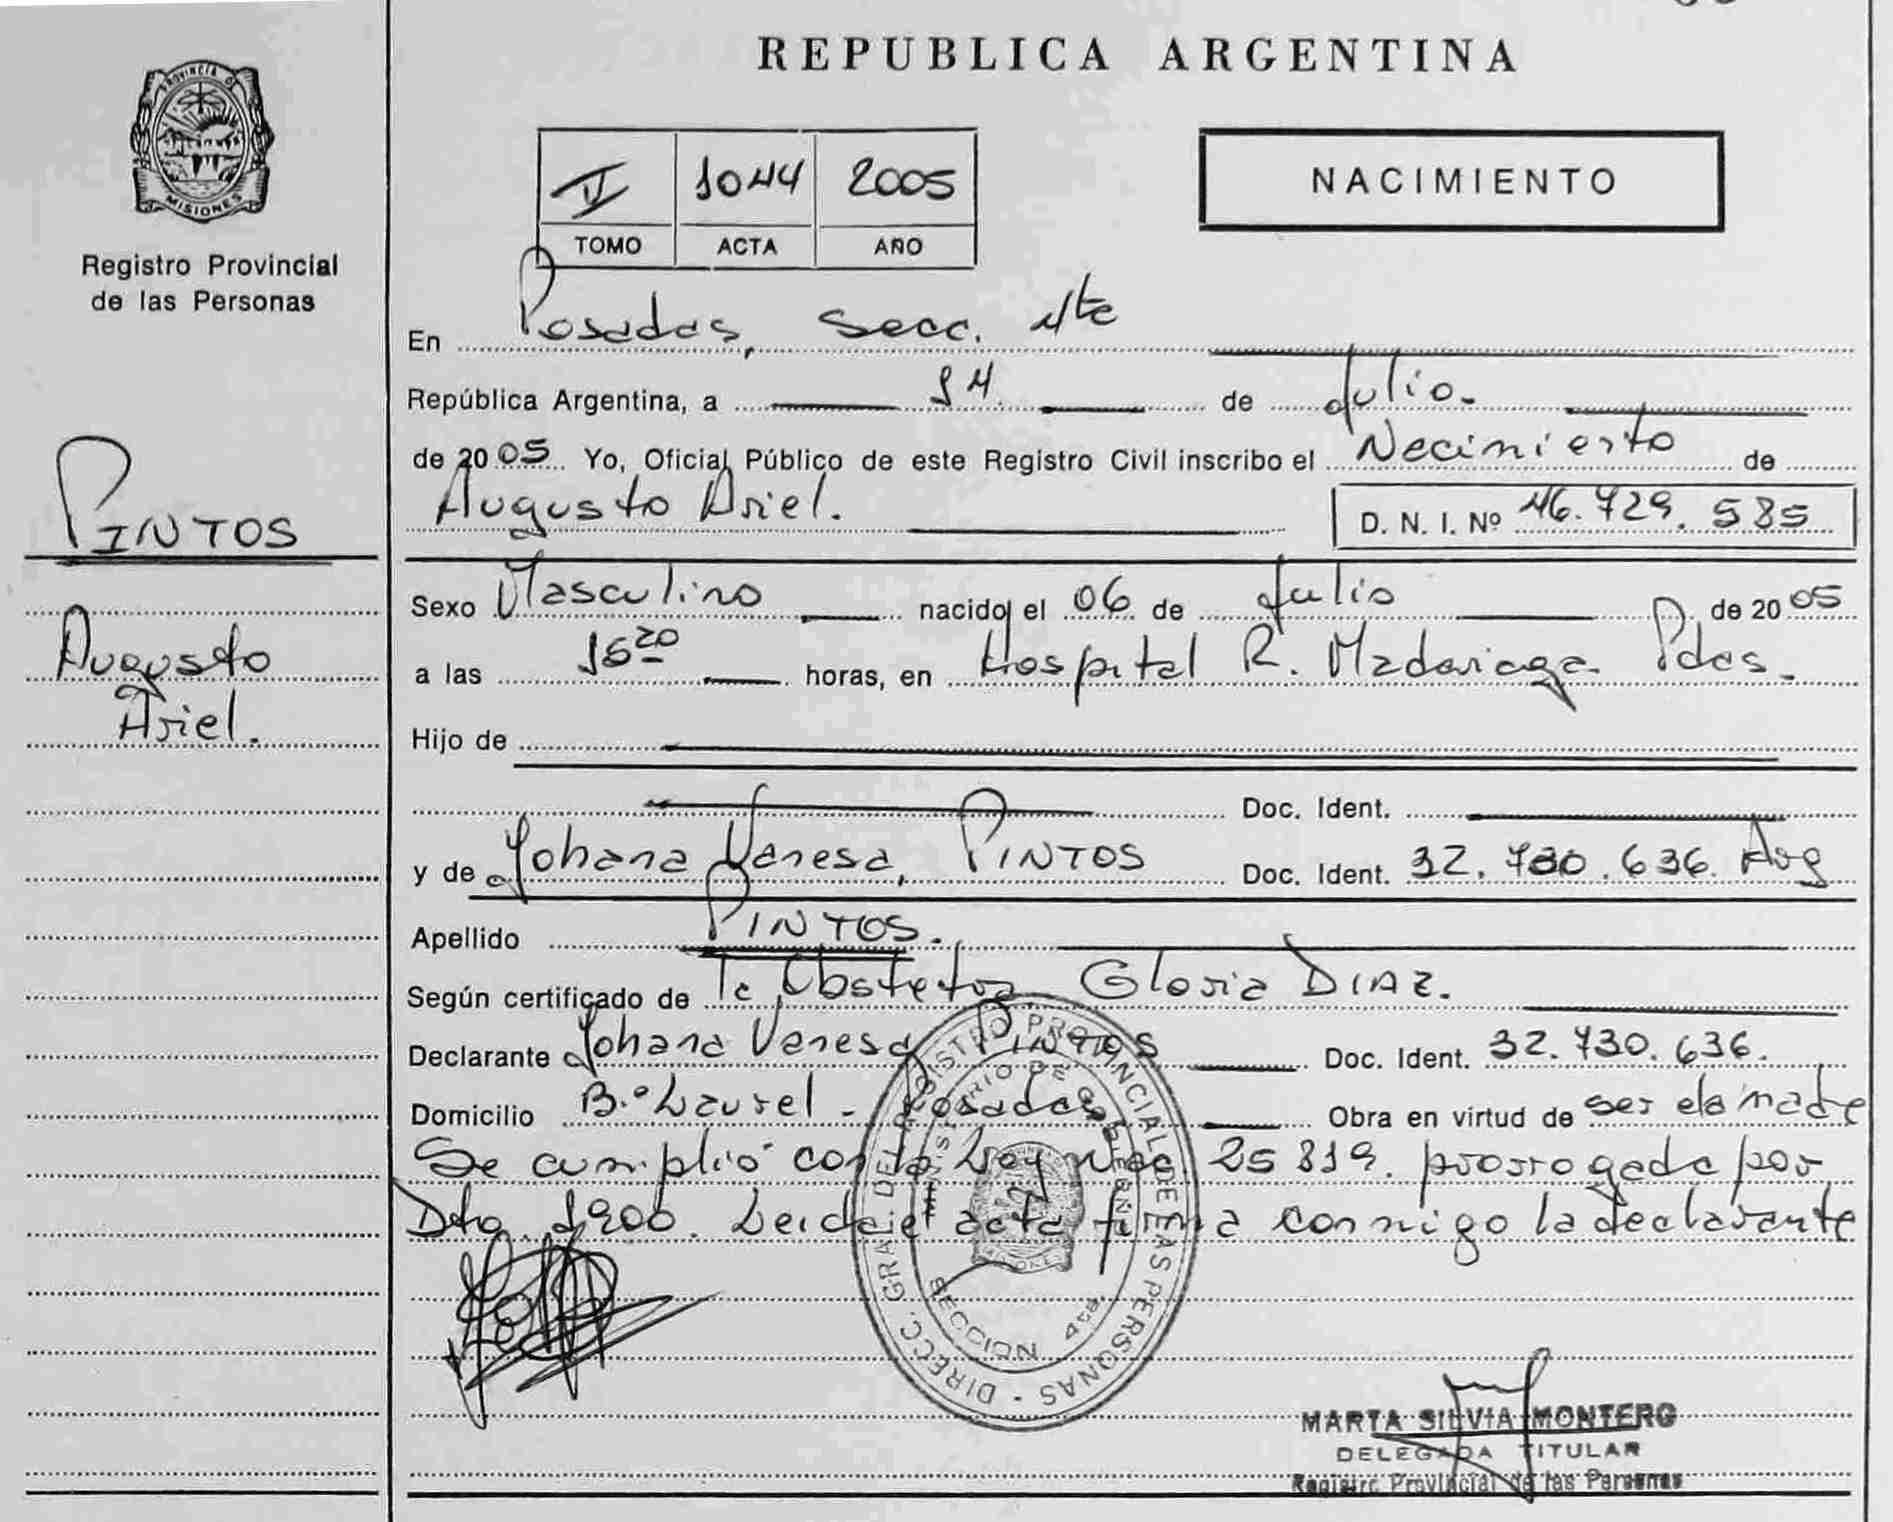 REPUBLICA ARGENTINA
PROVINCIA DE
MISIONES
Registro Provincial
de las Personas
1044 2005
TOMO ACTA AÑO
NACIMIENTO
En Posadas, Secc. 4ta
República Argentina, a 14 de Julio.
de 2005 Yo, Oficial Público de este Registro Civil inscribo el Nacimiento de
Augusto Ariel. D. N. I. Nº 46.729.585
PINTOS
Augusto
Ariel.
Sexo Masculino nacido el 06 de Julio de 2005
a las 1620 horas, en Hospital R. Madariaga. Pdas.
Hijo de
Doc. Ident.
y de Johana Vanesa, PINTOS Doc. Ident. 32.730.636. Arg
Apellido PINTOS.
Según certificado de Obstetra Gloria DIAZ.
Declarante Johana Vanesa Pintos Doc. Ident. 32.730.636.
Domicilio B.º Laurel - Posadas Obra en virtud de ser ela madre
Se cumplió con la Ley Nac. 25819. prorrogada por
Dto. 1900. Leida el acta firma conmigo la declarante
DIRECC. GRAL. DEL REGISTRO PROVINCIAL DE LAS PERSONAS
MINISTERIO DE GOBIERNO
SECCION 4ta.
MARTA SILVIA MONTERO
DELEGADA TITULAR
Registro Provincial de las Personas